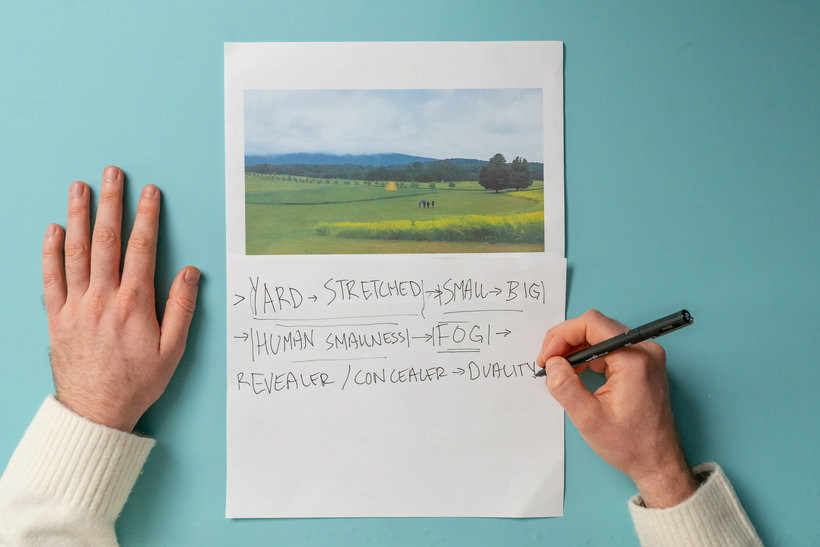 > YARD → STRETCHED | → SMALL → BIG |
→ | HUMAN SMALLNESS | → | FOG | →
REVEALER / CONCEALER → DUALITY